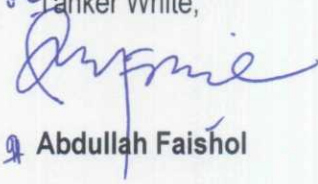 Tanker White,
Abdullah Faishol